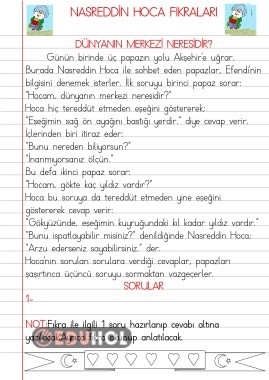 NASREDDİN HOCA FIKRALARI
DÜNYANIN MERKEZİ NERESİDİR?
Günün birinde üç papazın yolu Akşehir'e uğrar.
Burada Nasreddin Hoca ile sohbet eden papazlar, Efendi'nin
bilgisini denemek isterler. İlk soruyu birinci papaz sorar:
"Hocam, dünyanın merkezi neresidir?"
Hoca hiç tereddüt etmeden eşeğini göstererek:
"Eşeğimin sağ ön ayağını bastığı yerdir." diye cevap verir.
İçlerinden biri itiraz eder:
"Bunu nereden biliyorsun?"
"İnanmıyorsanız ölçün."
Bu defa ikinci papaz sorar:
"Hocam, gökte kaç yıldız vardır?"
Hoca bu soruya da tereddüt etmeden yine eşeğini
göstererek cevap verir:
"Gökyüzünde, eşeğimin kuyruğundaki kıl kadar yıldız vardır."
"Bunu ispatlayabilir misiniz?" denildiğinde Nasreddin Hoca;
"Arzu ederseniz sayabilirsiniz." der.
Hoca'nın sorulan sorulara verdiği cevaplar, papazları
şaşırtınca üçüncü soruyu sormaktan vazgeçerler.
SORULAR
1-
NOT:Fıkra ile ilgili 1 soru hazırlanıp cevabı altına
yazılacak. Ayrıca fıkra okunup anlatılacak.
EĞİTİMHOJ